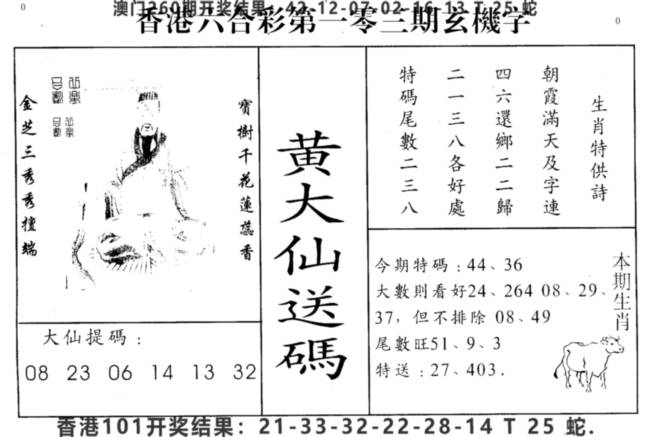 澳门260期开奖结果：42-12-07-02-16-13 T 25 蛇
香港六合彩第一零三期玄機字
0
0
金芝三秀秀擅端
寶樹千花蓮蕊香
大仙提碼：
08 23 06 14 13 32
黃大仙送碼
生肖特供詩
朝霞滿天及字連
四六還鄉二二歸
二一三八各好處
特碼尾數二三八
今期特碼：44、36
大數則看好24、264 08、29、
37，但不排除 08、49
尾數旺51、9、3
特送：27、403.
本期生肖
香港101开奖结果：21-33-32-22-28-14 T 25 蛇.